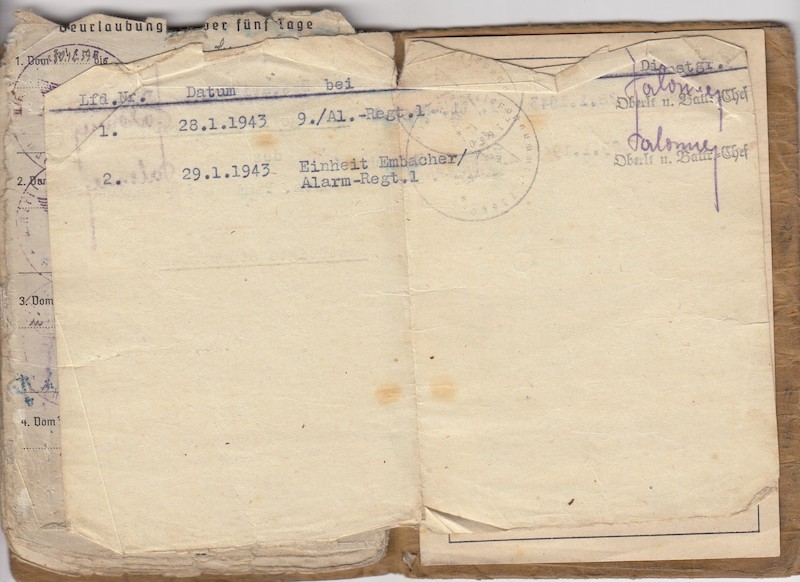 Beurlaubung über fünf Tage
1. Vom bis
Lfd.Nr. Datum bei Dienstgr.
1. 28.1.1943 9./Al.-Regt.1
Oberlt u. Battr.-Chef
2. Vom
2. 29.1.1943 Einheit Embacher/
Alarm-Regt.1
Oberlt u. Battr.-Chef
3. Vom
4. Vom